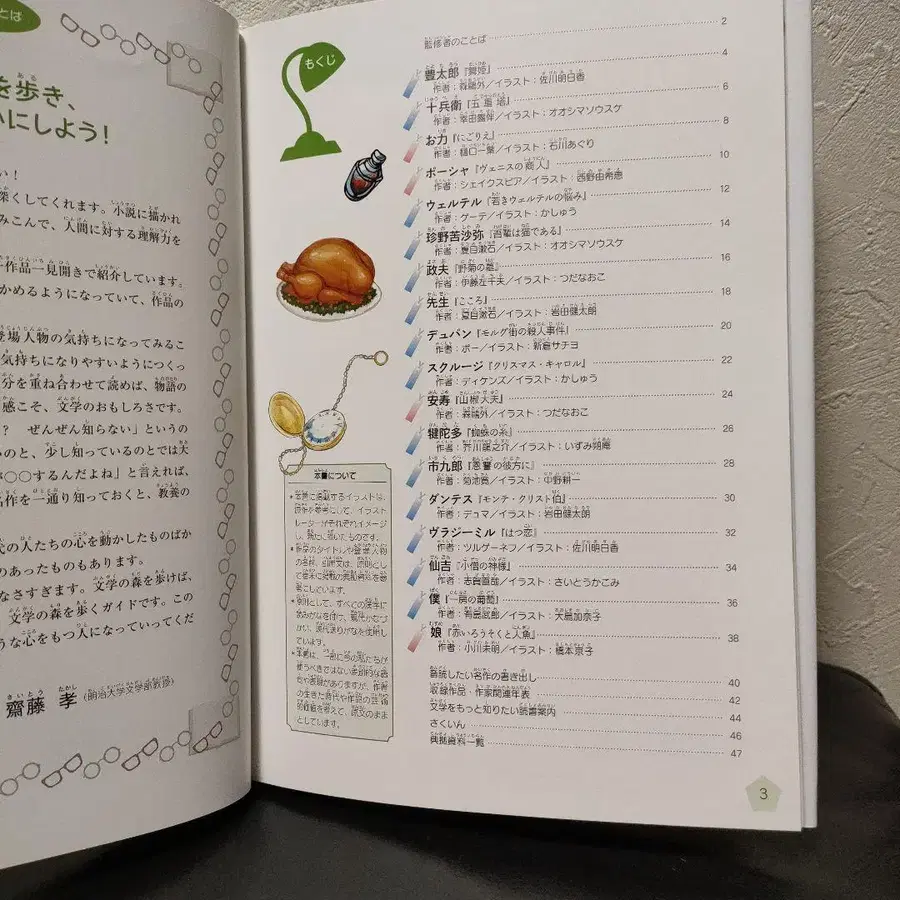 とは
を歩き、
いにしよう!
い!
深くしてくれます。小説に描かれ
みこんで、人間に対する理解力を
作品一見開きで紹介しています
かめるようになっていて、作品の
登場人物の気持ちになってみるこ
気持ちになりやすいようにつくっ
分を重ね合わせて読めば、物語の
感こそ、文学のおもしろさです。
? ぜんぜん知らない」というの
のと、少し知っているのとでは大
が○○するんだよね」と言えれば、
名作を一通り知っておくと、教養の
代の人たちの心を動かしたものばか
のあったものもあります。
なさすぎます。文学の森を歩けば、
文学の森を歩くガイドです。この
うな心をもつ人になっていってくだ
さいとう たかし
齋藤 孝 (明治大学文学部教授)
もくじ
監修者のことば 2
豊太郎『舞姫』 4
作者:森鷗外/イラスト:佐川明日香
十兵衛『五重塔』 6
作者:幸田露伴/イラスト:オオシマソウスケ
お力『にごりえ』 8
作者:樋口一葉/イラスト:石川あぐり
ポーシャ『ヴェニスの商人』 10
作者:シェイクスピア/イラスト:西野由希恵
ウェルテル『若きウェルテルの悩み』 12
作者:ゲーテ/イラスト:かしゅう
珍野苦沙弥『吾輩は猫である』 14
作者:夏目漱石/イラスト:オオシマソウスケ
政夫『野菊の墓』 16
作者:伊藤左千夫/イラスト:つだなおこ
先生『こころ』 18
作者:夏目漱石/イラスト:岩田健太朗
デュパン『モルグ街の殺人事件』 20
作者:ポー/イラスト:新倉サチヨ
スクルージ『クリスマス・キャロル』 22
作者:ディケンズ/イラスト:かしゅう
安寿『山椒大夫』 24
作者:森鷗外/イラスト:つだなおこ
犍陀多『蜘蛛の糸』 26
作者:芥川龍之介/イラスト:いずみ朔庵
市九郎『恩讐の彼方に』 28
作者:菊池寛/イラスト:中野耕一
ダンテス『モンテ・クリスト伯』 30
作者:デュマ/イラスト:岩田健太朗
ヴラジーミル『はつ恋』 32
作者:ツルゲーネフ/イラスト:佐川明日香
仙吉『小僧の神様』 34
作者:志賀直哉/イラスト:さいとうかこみ
僕『一房の葡萄』 36
作者:有島武郎/イラスト:大島加奈子
娘『赤いろうそくと人魚』 38
作者:小川未明/イラスト:橋本京子
音読したい名作の書き出し 40
収録作品・作家関連年表 42
文学をもっと知りたい読書案内 44
さくいん 46
典拠資料一覧 47
本■について
•本書に掲載するイラストは、
原作を参考にして、イラスト
レーターがそれぞれイメージ
し、新たに描いたものです。
の名前、引用文は、原則とし
て巻末に掲載の典拠資料を参
考にしています。
•原則として、すべての漢字に
ふりがなを付け、現代かなづ
かい、現代送りがなを使用し
ています。
•本書は、一部に今の私たちが
使うべきではない表現的な語
句や表現がありますが、作者
の生きた時代や作品の芸術
的価値を考えて、原文のまま
としています。
3